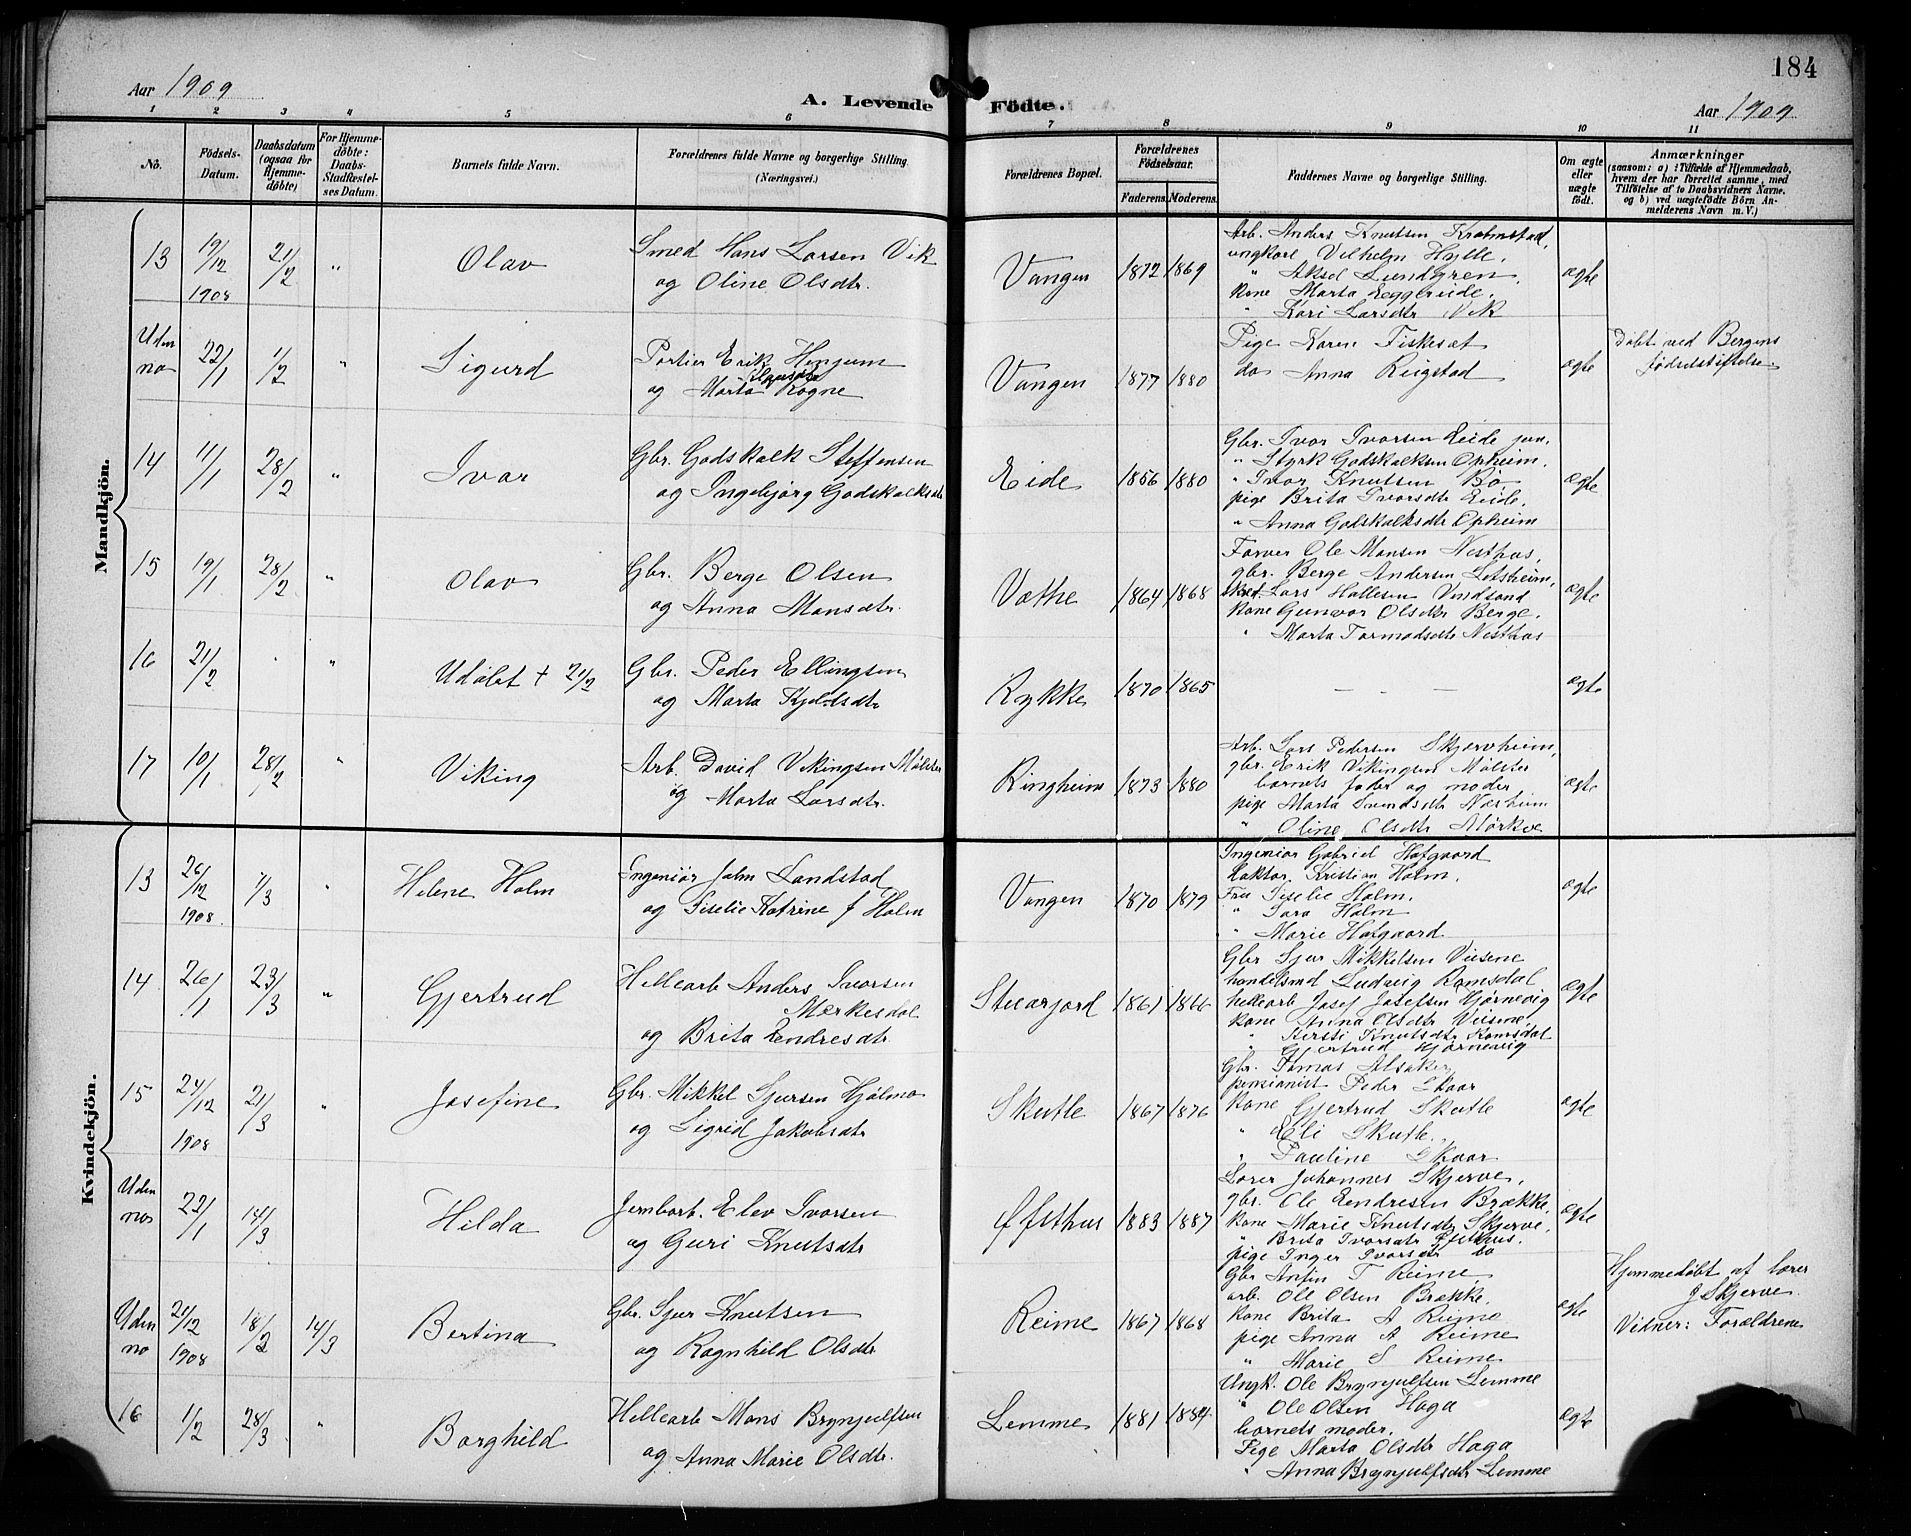 184
Aar 1909
A. Levende Födte.
Aar 1909
1 2 3 4 5 6 7 8 9 10 11
No.
Födsels-Datum.
Daabsdatum (ogsaa for Hjemme-döbte)
For Hjemme-döbte: Daabs-Stadfæstel-ses Datum.
Barnets fulde Navn.
Forældrenes fulde Navne og borgerlige Stilling. (Næringsvei.)
Forældrenes Bopæl.
Forældrenes Födselsaar.
Faderens. Moderens.
Faddernes Navne og borgerlige Stilling.
Om ægte eller uægte födt.
Anmærkninger
(saasom: a) i Tilfælde af Hjemmedaab,
hvem der har forrettet samme, med
Tilföielse af to Daabsvidners Navne.
og b) ved uægtefödte Börn An-
melderens Navn m. V.)
Mandkjön.
13 19/12 1908 21/2 " Olav
Smed Hans Larsen Vik
og Oline Olsdtr.
Vangen 1872 1869
Arb. Anders Knutsen Kralmstad,
ungkarl Vilhelm Hylle,
" Aksel Lundgren,
kone Marta Eggereide,
" Kari Larsdtr Vik
ægte
Uden no 22/1 1/2 " Sigurd
Portier Erik Henjum
og Marta Rogne
Vangen 1877 1880
Pige Karen Fiskesæt
do Anna Reigstad
ægte
Døbt ved Bergens
fødselsstiftelse
14 11/1 28/2 " Ivar
Gbr. Godskalk Steffensen
og Ingebjørg Godskalksdtr
Eide 1856 1880
Gbr. Ivar Ivarsen Eide jun.
" Styrk Godskalksen Opheim,
" Ivar Knutsen Bø
pige Brita Ivarsdtr Eide,
" Anna Godskalksdtr Opheim
ægte
15 19/1 28/2 " Olav
Gbr. Berge Olsen
og Anna Mansdtr.
Vathe 1864 1868
Farver Ole Mansen Nesthus,
gbr. Berge Andersen Setsheim,
Lars Hallesen Vindsand
kone Gunvor Olsdtr Berge,
" Marta Tormodsdtr Nesthus
ægte
16 21/2 . " Udøbt + 21/2
Gbr. Peder Ellingsen
og Marta Kjelsdtr
Rykke 1870 1865
— . —
ægte
17 10/1 28/2 " Viking
Arb. David Vikingsen Mølster
og Marta Larsdtr.
Ringheim 1873 1880
Arb. Lars Pedersen Skjervheim,
gbr. Erik Vikingsen Mølster
barnets fader og moder
pige Marta Svendsdtr Næsheim
" Oline Olsdtr Mørkve
ægte
Kvindekjön.
13 26/12 1908 7/3 " Helene Holm
Ingeniør John Landstad
og Giselie Katrine f Holm
Vangen 1870 1879
Ingeniør Gabriel Hafgaard
Doktor Kristian Holm,
Fru Giselie Holm,
" Sara Holm
" Marie Hafgaard
ægte
14 26/1 23/3 " Gjertrud
Hellearb Anders Ivarsen
Merkesdal
og Brita Endresdtr
Stuarjord 1861 1866
Gbr Sjur Mikkelsen Viesene
handelsmd Ludvig Ramsdal
hellearb Josef Josefsen Hjørnevig
kone Anna Olsdtr Viesene,
" Kersti Knutsdtr Ramsdal
" Gjertrud Hjørnevig
ægte
15 24/12 1908 21/3 " Josefine
Gbr. Mikkel Sjursen Hjølmo
og Sigrid Jakobsdtr
Skutle 1867 1876
Gbr. Tomas Alsaker
pensionist Peder Skaar
kone Gjertrud Skutle
" Eli Skutle,
" Pauline Skaar
ægte
Uden no 22/1 14/3 Hilda
Jernbarb. Elev Ivarsen
og Guri Knutsdtr
Øfsthus 1883 1887
Lærer Johannes Skjerve,
gbr. Ole Endresen Brække,
kone Marie Knutsdtr Skjerve,
" Brita Ivarsdtr Øfsthus.
pige Inger Ivarsdtr do
ægte
Uden no 21/12 1908 18/2 14/3 Bertina
Gbr. Sjur Knutsen
og Ragnhild Olsdtr
Reime 1867 1868
Gbr Anfin T Reime,
arb. Ole Olsen Brekke,
kone Brita A Reime
pige Anna A Reime
" Marie S Reime
ægte
Hjemmedøbt af lærer
J Skjerve.
Vidner: Forældrene
16 1/2 28/3 " Borghild
Hellearb Mons Brynjulfsen
og Anna Marie Olsdtr.
Lemme 1881 1884
Ungk. Ole Brynjulfsen Lemme
" Ole Olsen Haga
barnets moder,
Pige Marta Olsdtr Haga
" Anna Brynjulfsdtr Lemme
ægte